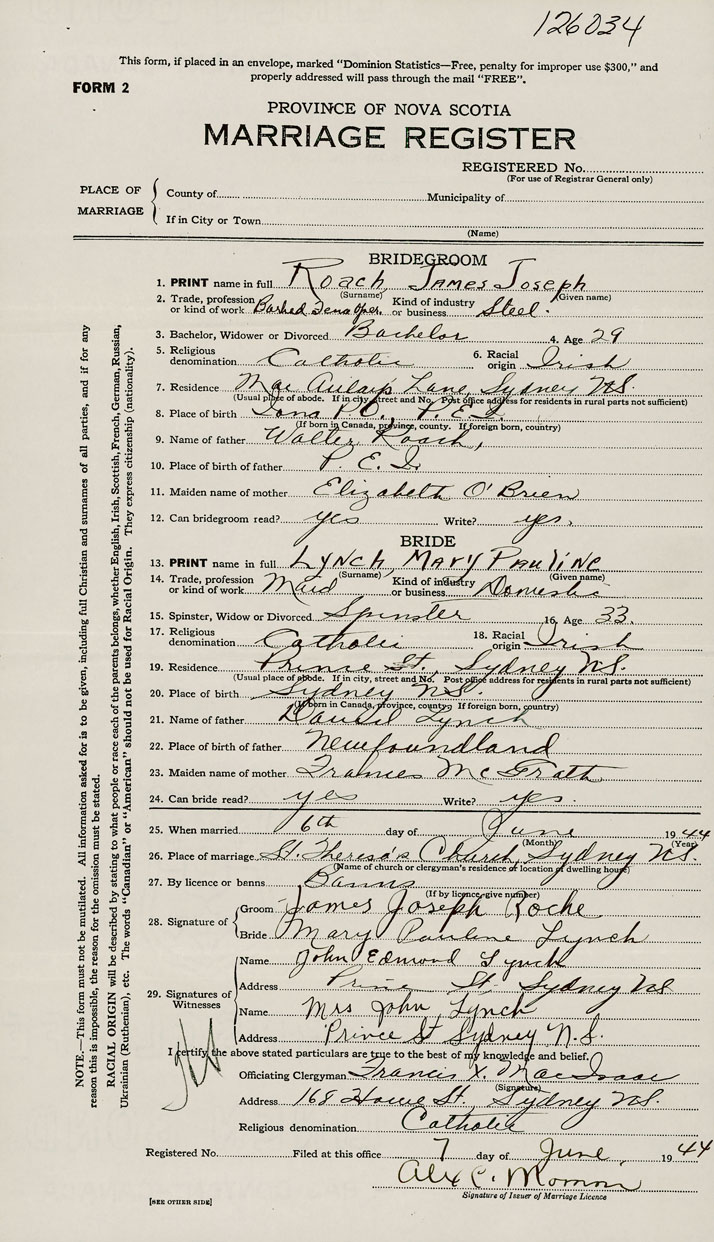 126034
This form, if placed in an envelope, marked "Dominion Statistics—Free, penalty for improper use $300," and
properly addressed will pass through the mail "FREE".
FORM 2
PROVINCE OF NOVA SCOTIA
MARRIAGE REGISTER
REGISTERED No.
(For use of Registrar General only)
PLACE OF MARRIAGE
County of Municipality of
If in City or Town
(Name)
BRIDEGROOM
1. PRINT name in full Roach, James Joseph
(Surname) (Given name)
2. Trade, profession or kind of work Kind of industry or business Steel.
3. Bachelor, Widower or Divorced Bachelor 4. Age 29
5. Religious denomination Catholic 6. Racial origin Irish
7. Residence Lane, Sydney N.S.
(Usual place of abode. If in city, street and No. Post office address for residents in rural parts not sufficient)
8. Place of birth P.O., P.E.I.
(If born in Canada, province, county. If foreign born, country)
9. Name of father Walter Roach,
10. Place of birth of father P.E.I.
11. Maiden name of mother Elizabeth O'Brien
12. Can bridegroom read? yes Write? yes.
BRIDE
13. PRINT name in full Lynch, Mary Pauline
(Surname) (Given name)
14. Trade, profession or kind of work Maid Kind of industry or business Domestic
15. Spinster, Widow or Divorced Spinster 16. Age 33.
17. Religious denomination Catholic 18. Racial origin Irish
19. Residence Prince St., Sydney N.S.
(Usual place of abode. If in city, street and No. Post office address for residents in rural parts not sufficient)
20. Place of birth Sydney N.S.
(If born in Canada, province, county. If foreign born, country)
21. Name of father Lynch
22. Place of birth of father Newfoundland
23. Maiden name of mother Frances McGrath
24. Can bride read? yes Write? yes.
25. When married 6th day of June 1944
(Month) (Year)
26. Place of marriage St. Theresa's Church, Sydney N.S.
(Name of church or clergyman's residence or location of dwelling house)
27. By licence or banns Banns
(If by licence, give number)
28. Signature of
Groom James Joseph Roche
Bride Mary Pauline Lynch
29. Signatures of Witnesses
Name John Edmond Lynch
Address Prince St. Sydney N.S.
Name Mrs John Lynch
Address Prince St Sydney N.S.
I certify the above stated particulars are true to the best of my knowledge and belief.
Officiating Clergyman Francis X. MacIsaac
(Signature)
Address 168 Howe St. Sydney N.S.
Religious denomination Catholic
Registered No. Filed at this office 7 day of June, 1944
Alex C.
Signature of Issuer of Marriage Licence
[SEE OTHER SIDE]
NOTE.—This form must not be mutilated. All information asked for is to be given, including full Christian and surnames of all parties, and if for any
reason this is impossible, the reason for the omission must be stated.
RACIAL ORIGIN will be described by stating to what people or race each of the parents belongs, whether English, Irish, Scottish, French, German, Russian,
Ukrainian (Ruthenian), etc. The words "Canadian" or "American" should not be used for Racial Origin. They express citizenship (nationality).